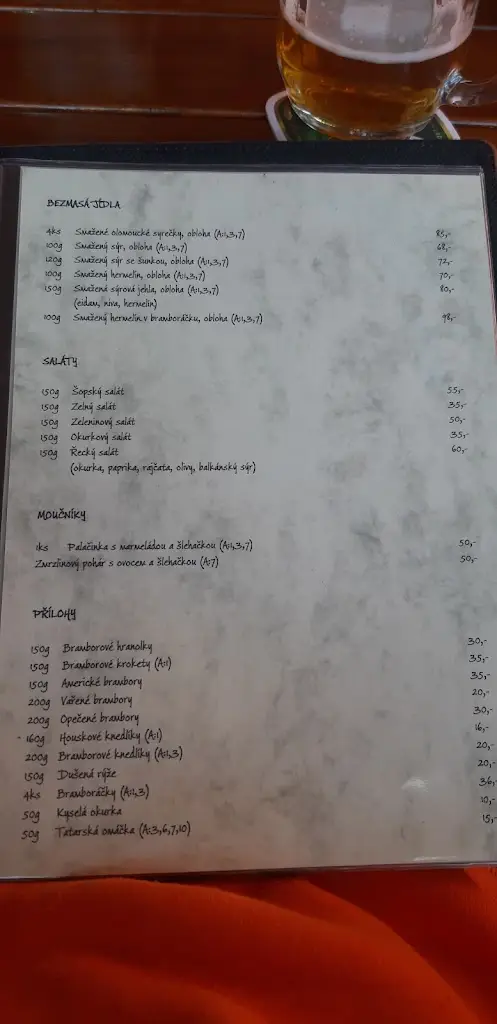 BEZMASÁ JÍDLA
4ks Smažené olomoucké syrečky, obloha (A:1,3,7) 85,-
100g Smažený sýr, obloha (A:1,3,7) 68,-
120g Smažený sýr se šunkou, obloha (A:1,3,7) 72,-
100g Smažený hermelín, obloha (A:1,3,7) 70,-
150g Smažená sýrová jehla, obloha (A:1,3,7) 80,-
(eidam, niva, hermelín)
100g Smažený hermelín v bramboráčku, obloha (A:1,3,7) 98,-
SALÁTY
150g Šopský salát 55,-
150g Zelný salát 35,-
150g Zeleninový salát 50,-
150g Okurkový salát 35,-
150g Řecký salát 60,-
(okurka, paprika, rajčata, olivy, balkánský sýr)
MOUČNÍKY
1ks Palačinka s marmeládou a šlehačkou (A:1,3,7) 50,-
Zmrzlinový pohár s ovocem a šlehačkou (A:7) 50,-
PŘÍLOHY
150g Bramborové hranolky 30,-
150g Bramborové krokety (A:1) 35,-
150g Americké brambory 35,-
200g Vařené brambory 20,-
200g Opečené brambory 30,-
160g Houskové knedlíky (A:1) 16,-
200g Bramborové knedlíky (A:1,3) 20,-
150g Dušená rýže 20,-
4ks Bramboráčky (A:1,3) 36,-
50g Kyselá okurka 10,-
50g Tatarská omáčka (A:3,6,7,10) 15,-